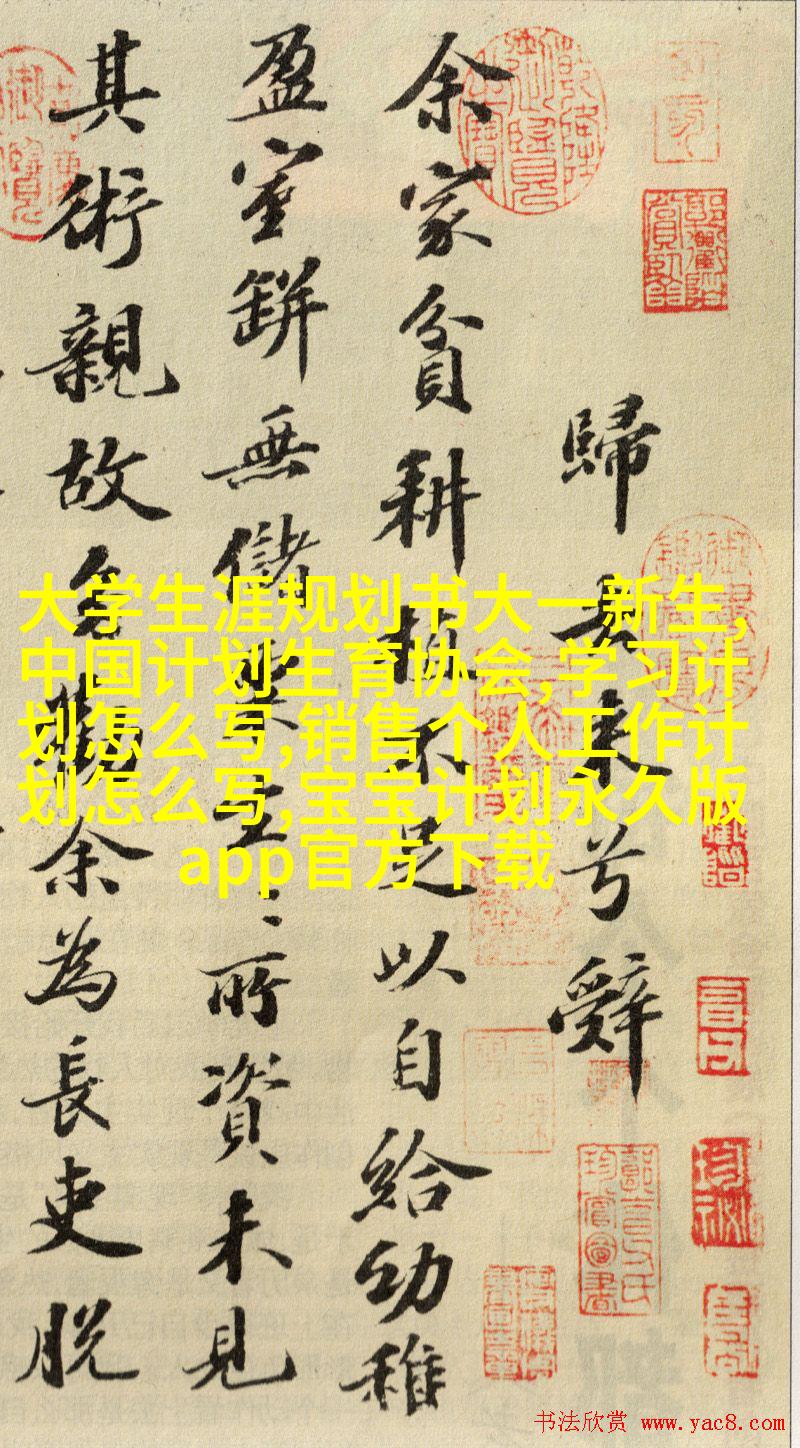 歸去來兮辭
余家貧耕植不足以自給幼稚
盈室缾無儲粟生〻所資未見
其術親故多勸余為長吏脫
大学生涯规划书大一新生,
中国计划生育协会,学习计
划怎么写,销售个人工作计
划怎么写,宝宝计划永久版
app官方下载
书法欣赏 www.yac8.com